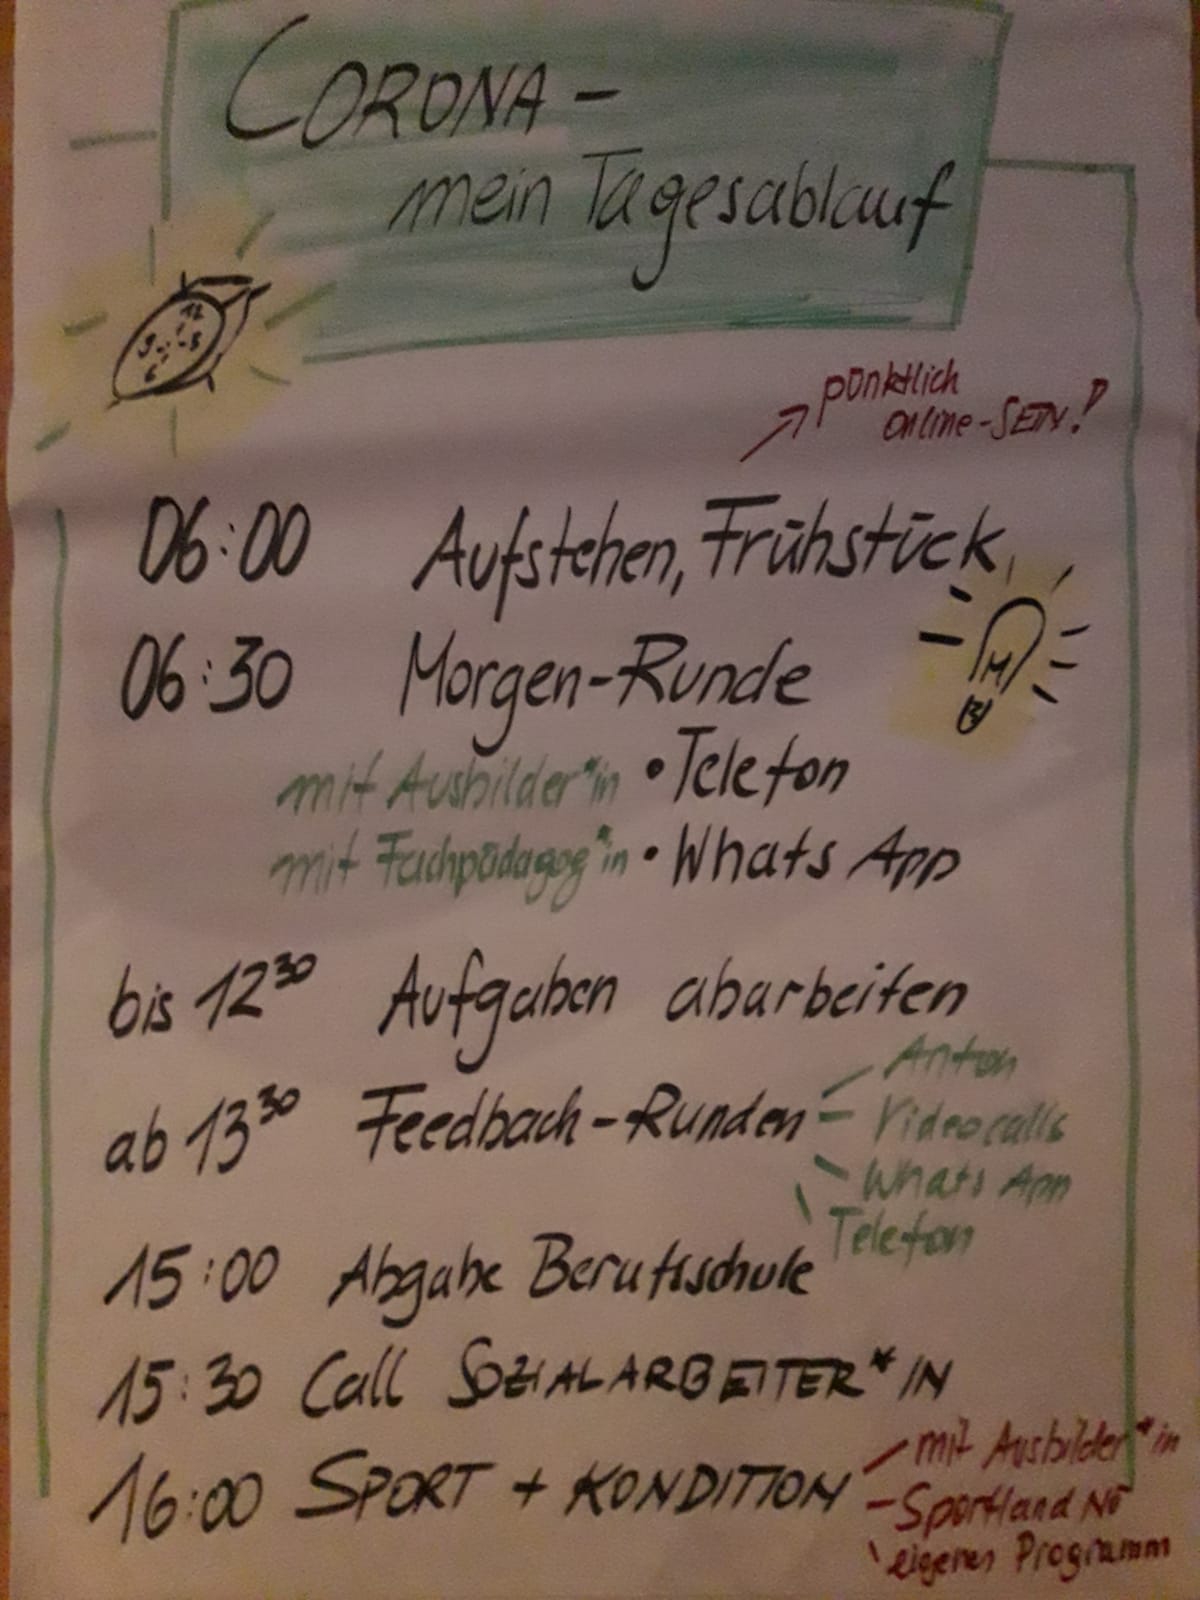 CORONA -
mein Tagesablauf
pünktlich
online-SEIN!
06:00 Aufstehen, Frühstück
06:30 Morgen-Runde
mit Ausbilder*in • Telefon
mit Fachpädagog*in • Whats App
bis 12³⁰ Aufgaben abarbeiten
ab 13³⁰ Feedback-Runden
Anton
Videocalls
Whats App
Telefon
15:00 Abgabe Berufsschule
15:30 Call SOZIALARBEITER*IN
16:00 SPORT + KONDITION
mit Ausbilder*in
- Sportland NÖ
eigenes Programm